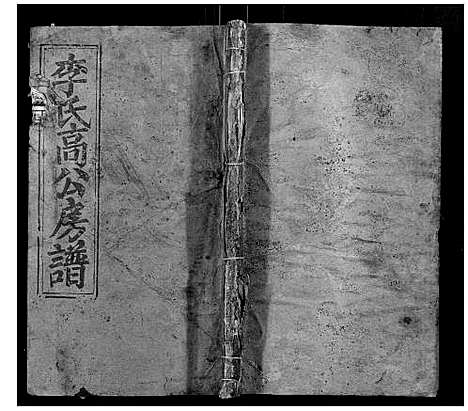 李氏高公房譜